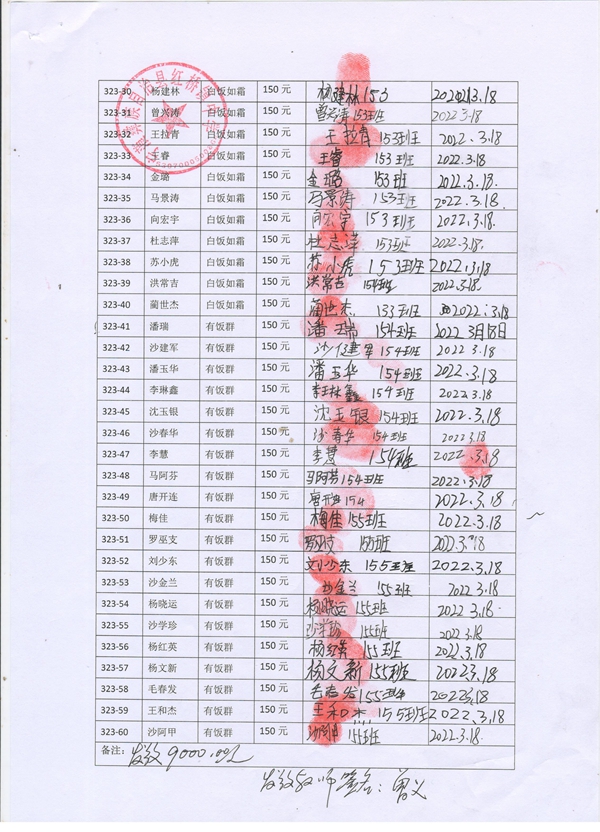 323-30 杨建林 白饭如霜 150 元 杨建林 153 2022.3.18
323-31 曾兴涛 白饭如霜 150 元 153班 2022.3.18
323-32 王拉青 白饭如霜 150 元 王拉青 153班 2022.3.18
323-33 王睿 白饭如霜 150 元 王睿 153班 2022.3.18
323-34 金璐 白饭如霜 150 元 金璐 153班 2022.3.18.
323-35 马景涛 白饭如霜 150 元 马景涛 153班 2022.3.18
323-36 向宏宇 白饭如霜 150 元 向宏宇 153班 2022.3.18.
323-37 杜志萍 白饭如霜 150 元 杜志萍 153班 2022.3.18.
323-38 苏小虎 白饭如霜 150 元 苏小虎 153班 2022.3.18
323-39 洪常吉 白饭如霜 150 元 洪常吉 154班 2022.3.18.
323-40 蔺世杰 白饭如霜 150 元 蔺世杰 153班 2022.3.18
323-41 潘瑞 有饭群 150 元 潘瑞 154班 2022 3月18日
323-42 沙建军 有饭群 150 元 沙建军 154班 2022 3.18
323-43 潘玉华 有饭群 150 元 潘玉华 154班 2022.3.18
323-44 李琳鑫 有饭群 150 元 李琳鑫 154班 2022.3.18
323-45 沈玉银 有饭群 150 元 沈玉银 154班 2022.3.18
323-46 沙春华 有饭群 150 元 沙春华 154班 2022.3.18
323-47 李慧 有饭群 150 元 李慧 154班 2022.3.18
323-48 马阿芬 有饭群 150 元 马阿芬 154班 2022.3.18
323-49 唐开连 有饭群 150 元 154 2022.3.18
323-50 梅佳 有饭群 150 元 梅佳 155班 2022.3.18
323-51 罗巫支 有饭群 150 元 155班 2022.3.18
323-52 刘少东 有饭群 150 元 刘少东 155班 2022.3.18
323-53 沙金兰 有饭群 150 元 沙金兰 155班 2022.3.18
323-54 杨晓运 有饭群 150 元 杨晓运 155班 2022 3.18
323-55 沙学珍 有饭群 150 元 155班 2022.3.18
323-56 杨红英 有饭群 150 元 杨红英 155班 2022.3.18
323-57 杨文新 有饭群 150 元 杨文新 155班 2022.3.18
323-58 毛春发 有饭群 150 元 155班 2022.3.18
323-59 王和杰 有饭群 150 元 王和杰 155班 2022.3.18
323-60 沙阿甲 有饭群 150 元 155班 2022.3.18
备注: 发放9000.元
发放教师签名: 曾义